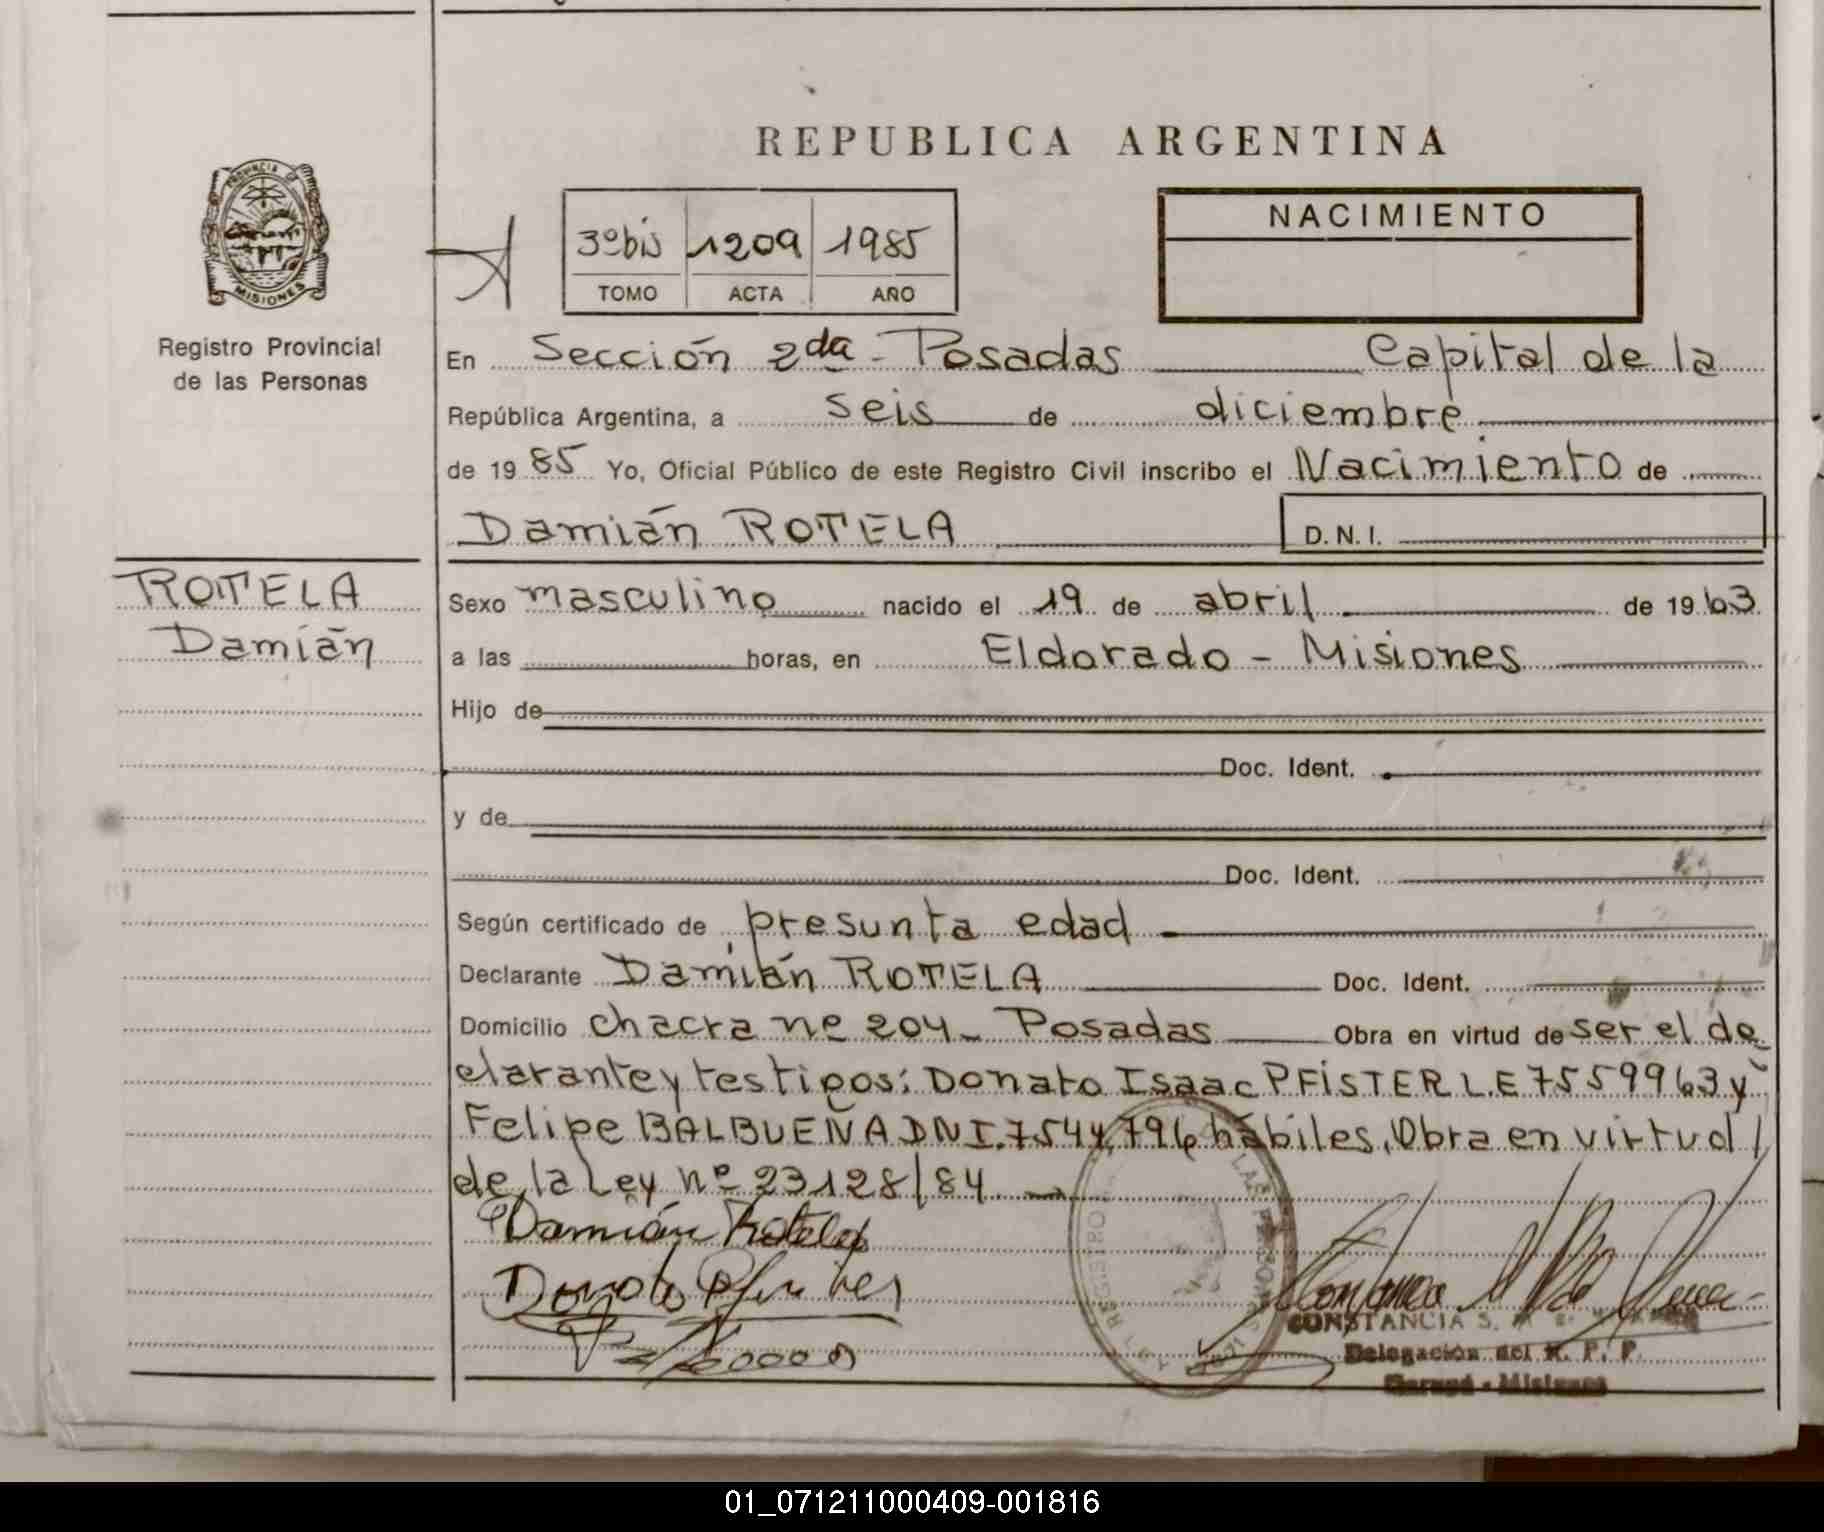 REPUBLICA ARGENTINA
PROVINCIA DE
MISIONES
Registro Provincial
de las Personas
3º bis 1209 1985
TOMO ACTA AÑO
NACIMIENTO
En Sección 2da - Posadas Capital de la
República Argentina, a seis de diciembre
de 1985 Yo, Oficial Público de este Registro Civil inscribo el Nacimiento de
Damián ROTELA D.N.I.
ROTELA
Damián
Sexo masculino nacido el 19 de abril de 1963
a las horas, en Eldorado - Misiones
Hijo de
Doc. Ident.
y de
Doc. Ident.
Según certificado de presunta edad
Declarante Damián ROTELA Doc. Ident.
Domicilio chacra nº 204 - Posadas Obra en virtud de ser el de
clarante y testigos: Donato Isaac PFISTER L.E 7559963 y
Felipe BALBUEÑA DNI. 7544.796 hábiles. Obra en virtud
de la Ley nº 23128/84
Damián Rotela
Donato Pfister
CONSTANCIA S.
Delegación del R. P. P.
Garupá - Misiones
01_071211000409-001816